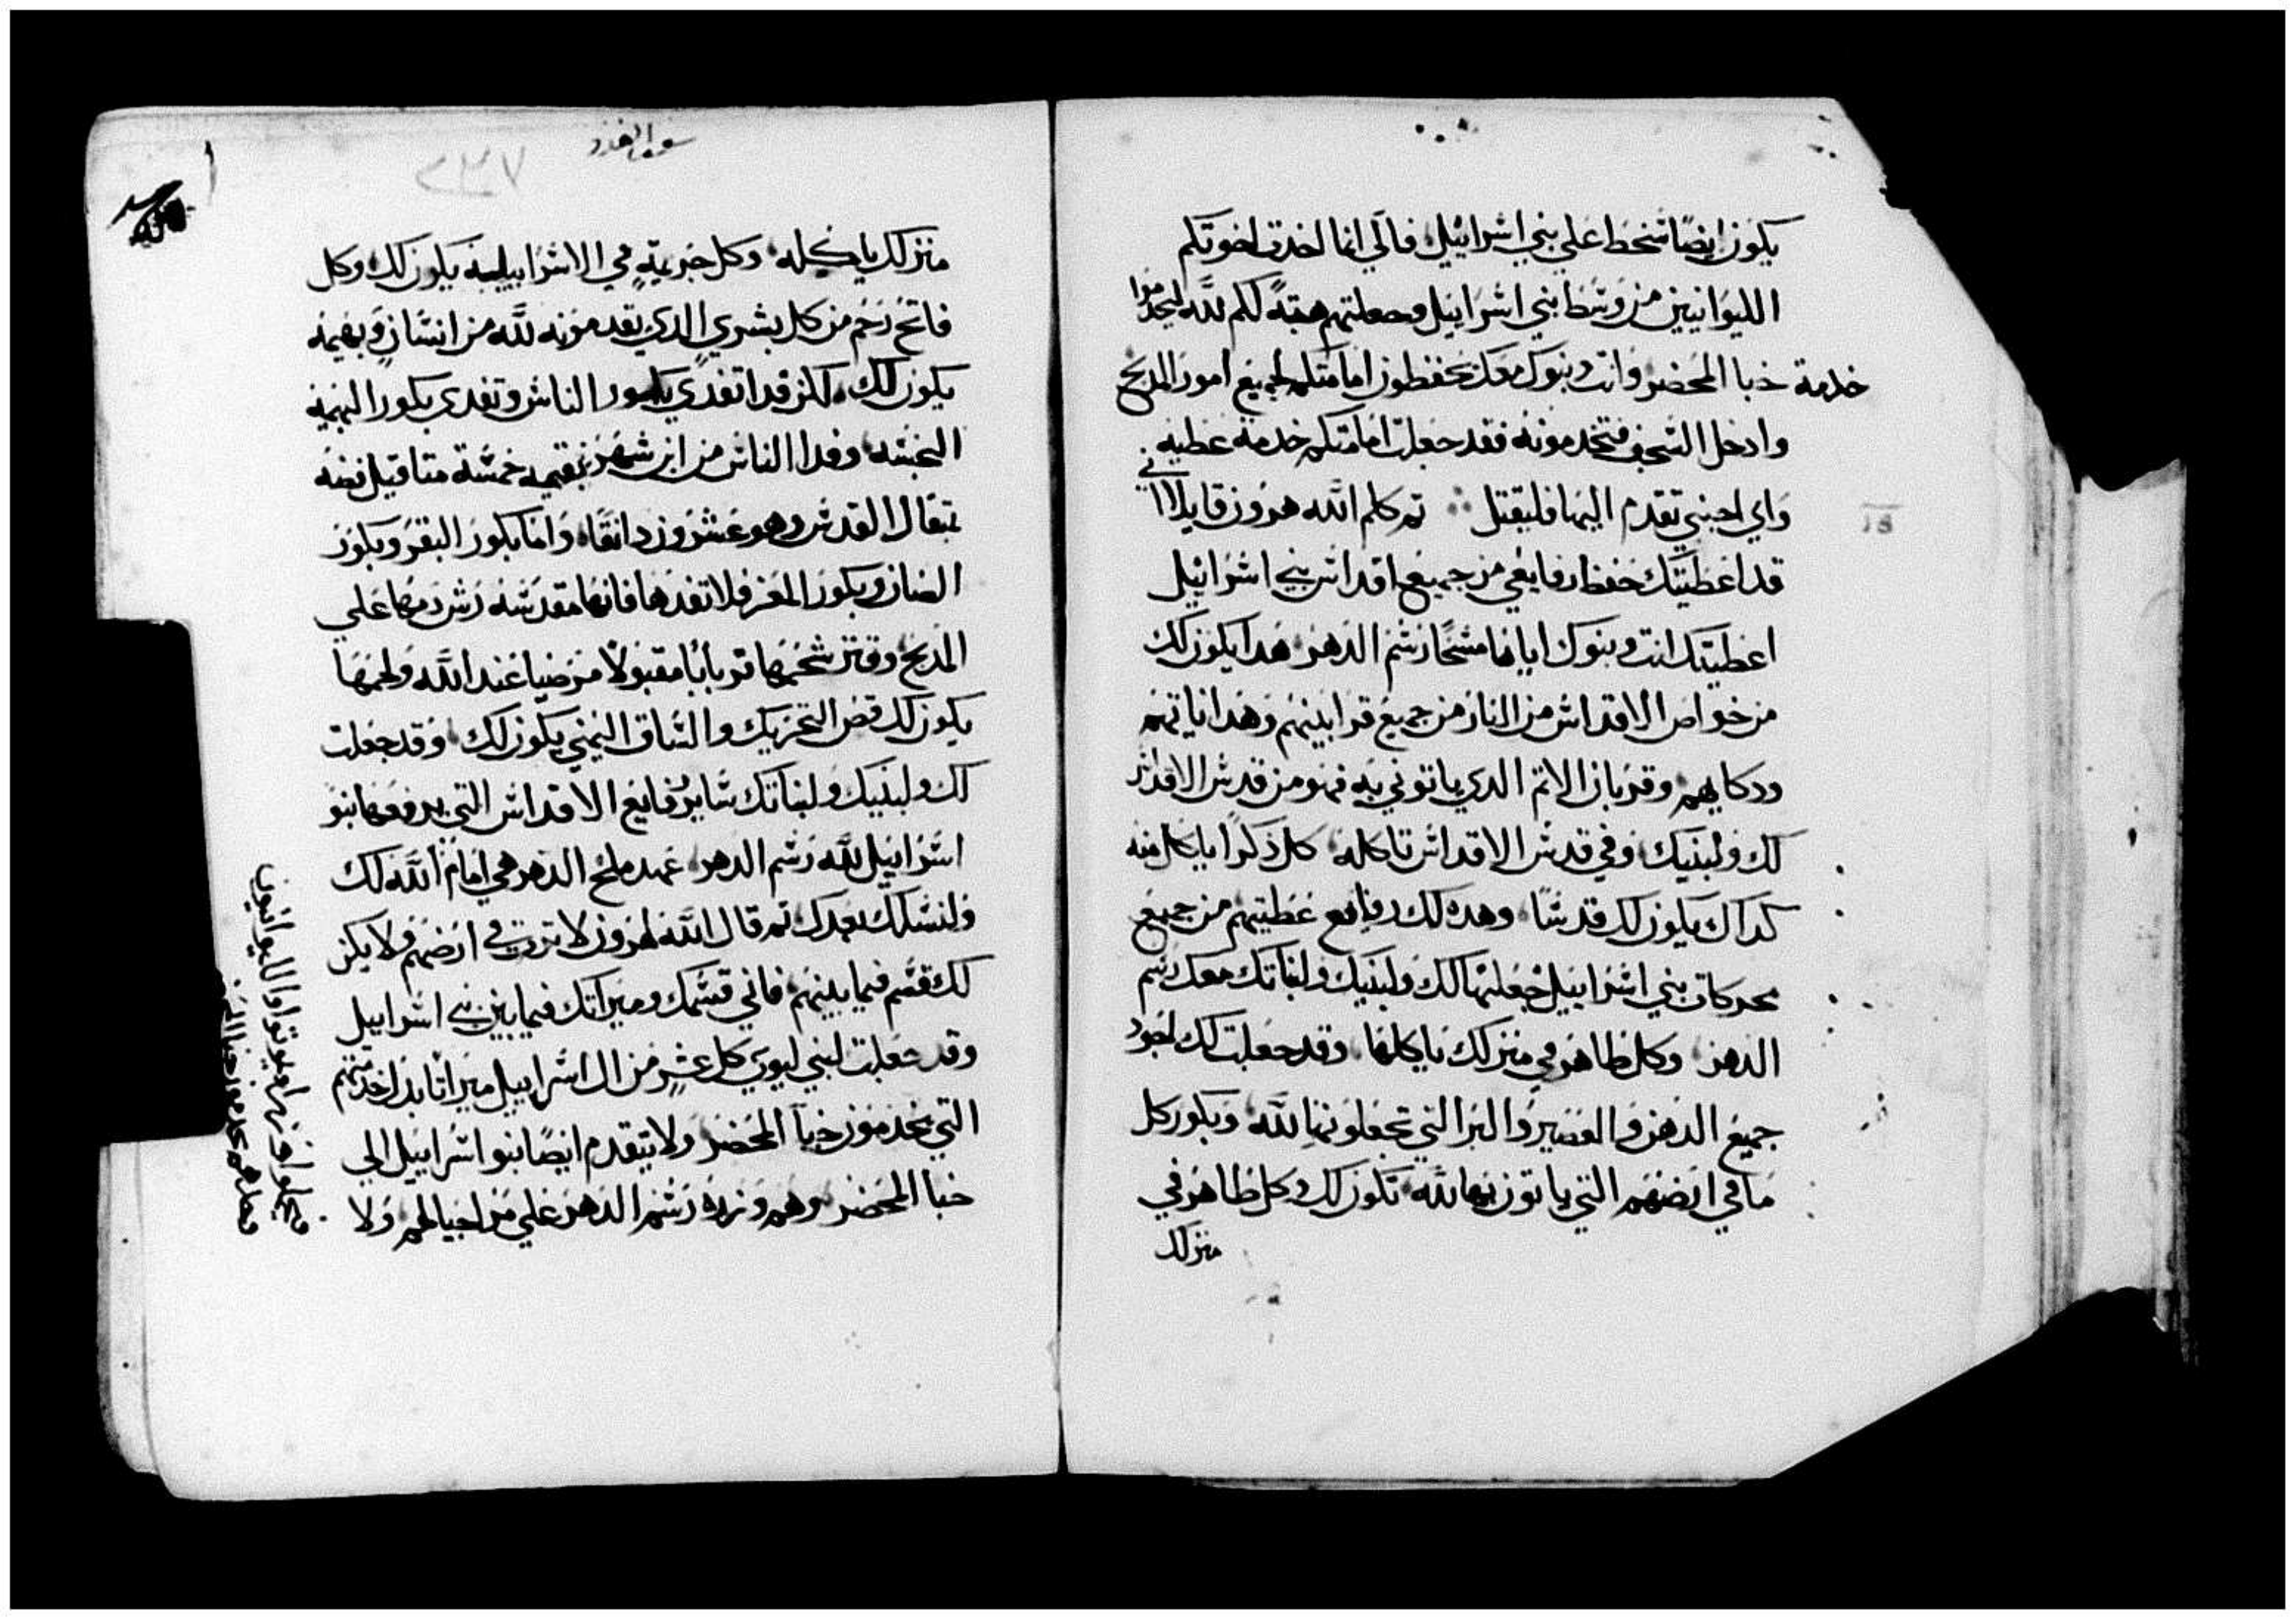 يكون ايضًا سخط على بني اسرائيل فاني انما اخدت اخوتكم
الليوانيين من وسط بني اسراييل وجعلتهم هبةً لكم لله ليخدموا
خدمة خبا المحضر وانت وبنوك معك تحفظون امامتكم لجميع امور المدبح
وادخل السجف فتخدمونه فقد جعلت امامتكم خدمة عطيه
واي اجنبي تقدم اليها فليقتل تم كلم الله هرون قايلا اني
قد اعطيتك حفظ رفايعي من جميع اقداس بني اسرائيل
اعطيتك انت وبنوك اياها مسحًا رسم الدهر هدا يكون لك
من خواص الاقداس من النار من جميع قرابينهم وهداياتهم
ودكايهم وقربان الاتم الدي ياتوني به فهو من قدس الاقداس
لك ولبنيك وفي قدس الاقداس تاكله كل ذكرًا ياكل منه
كداك يكون لك قدسًا وهده لك رفايع عطيتهم من جميع
محركات بني اسراييل جعلتها لك ولبنيك ولبناتك معك رسم
الدهر وكل طاهر في منزلك ياكلها وقد جعلت لك اجود
جميع الدهن والعصير والبر التي تجعلونها لله وبكور كل
ما في ارضهم التي ياتون بها لله تكون لك وكل طاهر في
منزلك
سفر العدد
٢٣٧
منزلك ياكله وكل حرميةٍ في الاسراييليه يكون لك وكل
فاتح رحم من كل بشري الدي يقدمونه لله من انسانٍ وبهيمه
يكون لك لكن فدا تفدي بكور الناس وتفدي بكور البهيمه
النجسه وفدا الناس من ابن شهر بقيمه خمسة متاقيل فضه
بتقال القدس وهو عشرون دانقًا واما بكور البقر وبكور
الضان وبكور المعز فلا تفدها فانها مقدسه رش دمها على
المدبح وقتر شحمها قربانًا مقبولًا مرضيا عند الله ولحمها
يكون لك قص التحريك والساق اليمني يكون لك وقد جعلت
لك ولبنيك ولبناتك ساير رفايع الاقداس التي يرفعها بنو
اسراييل لله رسم الدهر عهد ملح الدهر هي امام الله لك
ولنسلك بعدك تم قال الله لهرون لا ترت في ارضهم ولا يكن
لك قسم فيما بينهم فاني قسمك وميراتك فيما بين بني اسراييل
وقد جعلت لبني ليوي كل عشرٍ من ال اسراييل ميراتا بدل خدمتهم
التي يخدمون خبا المحضر ولا يتقدم ايضًا بنو اسراييل الى
خبا المحضر وهم وزره رسم الدهر على مر اجيالهم ولا